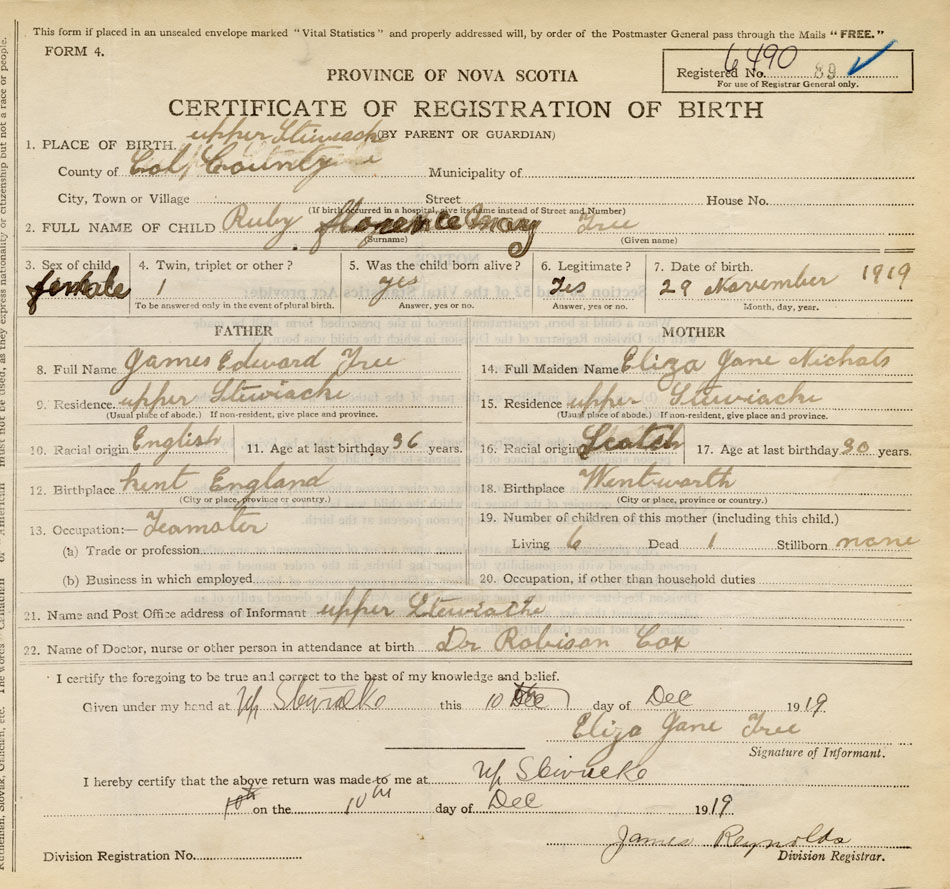 This form if placed in an unsealed envelope marked "Vital Statistics" and properly addressed will, by order of the Postmaster General pass through the Mails "FREE."
FORM 4.
6490
Registered No. 89
For use of Registrar General only.
PROVINCE OF NOVA SCOTIA
CERTIFICATE OF REGISTRATION OF BIRTH
(BY PARENT OR GUARDIAN)
1. PLACE OF BIRTH. upper Stewiack
County of Col, County Municipality of
City, Town or Village Street House No.
(If birth occurred in a hospital, give its name instead of Street and Number)
2. FULL NAME OF CHILD Ruby florence may Tree
(Surname) (Given name)
3. Sex of child female
4. Twin, triplet or other ? 1
To be answered only in the event of plural birth.
5. Was the child born alive ? yes
Answer, yes or no.
6. Legitimate ? yes
Answer, yes or no.
7. Date of birth. 29 November 1919
Month, day, year.
FATHER
8. Full Name James Edward Tree
9. Residence. upper Stewiacke
(Usual place of abode.) If non-resident, give place and province.
10. Racial origin English 11. Age at last birthday 36 years.
12. Birthplace kent England
(City or place, province or country.)
13. Occupation:— Teamster
(a) Trade or profession
(b) Business in which employed
MOTHER
14. Full Maiden Name Eliza Jane Nichols
15. Residence upper Stewiacke
(Usual place of abode.) If non-resident, give place and province.
16. Racial origin Scotch 17. Age at last birthday 30 years.
18. Birthplace Wentworth
(City or place, province or country.)
19. Number of children of this mother (including this child.)
Living 6 Dead 1 Stillborn none
20. Occupation, if other than household duties
21. Name and Post Office address of Informant upper Stewiacke
22. Name of Doctor, nurse or other person in attendance at birth Dr Robison Cox
I certify the foregoing to be true and correct to the best of my knowledge and belief.
Given under my hand at Up Stewiacke this 10 th day of Dec 1919
Eliza Jane Tree
Signature of Informant.
I hereby certify that the above return was made to me at Up Stewiacke
10th on the 10th day of Dec 1919
James Reynolds
Division Registrar.
Division Registration No.